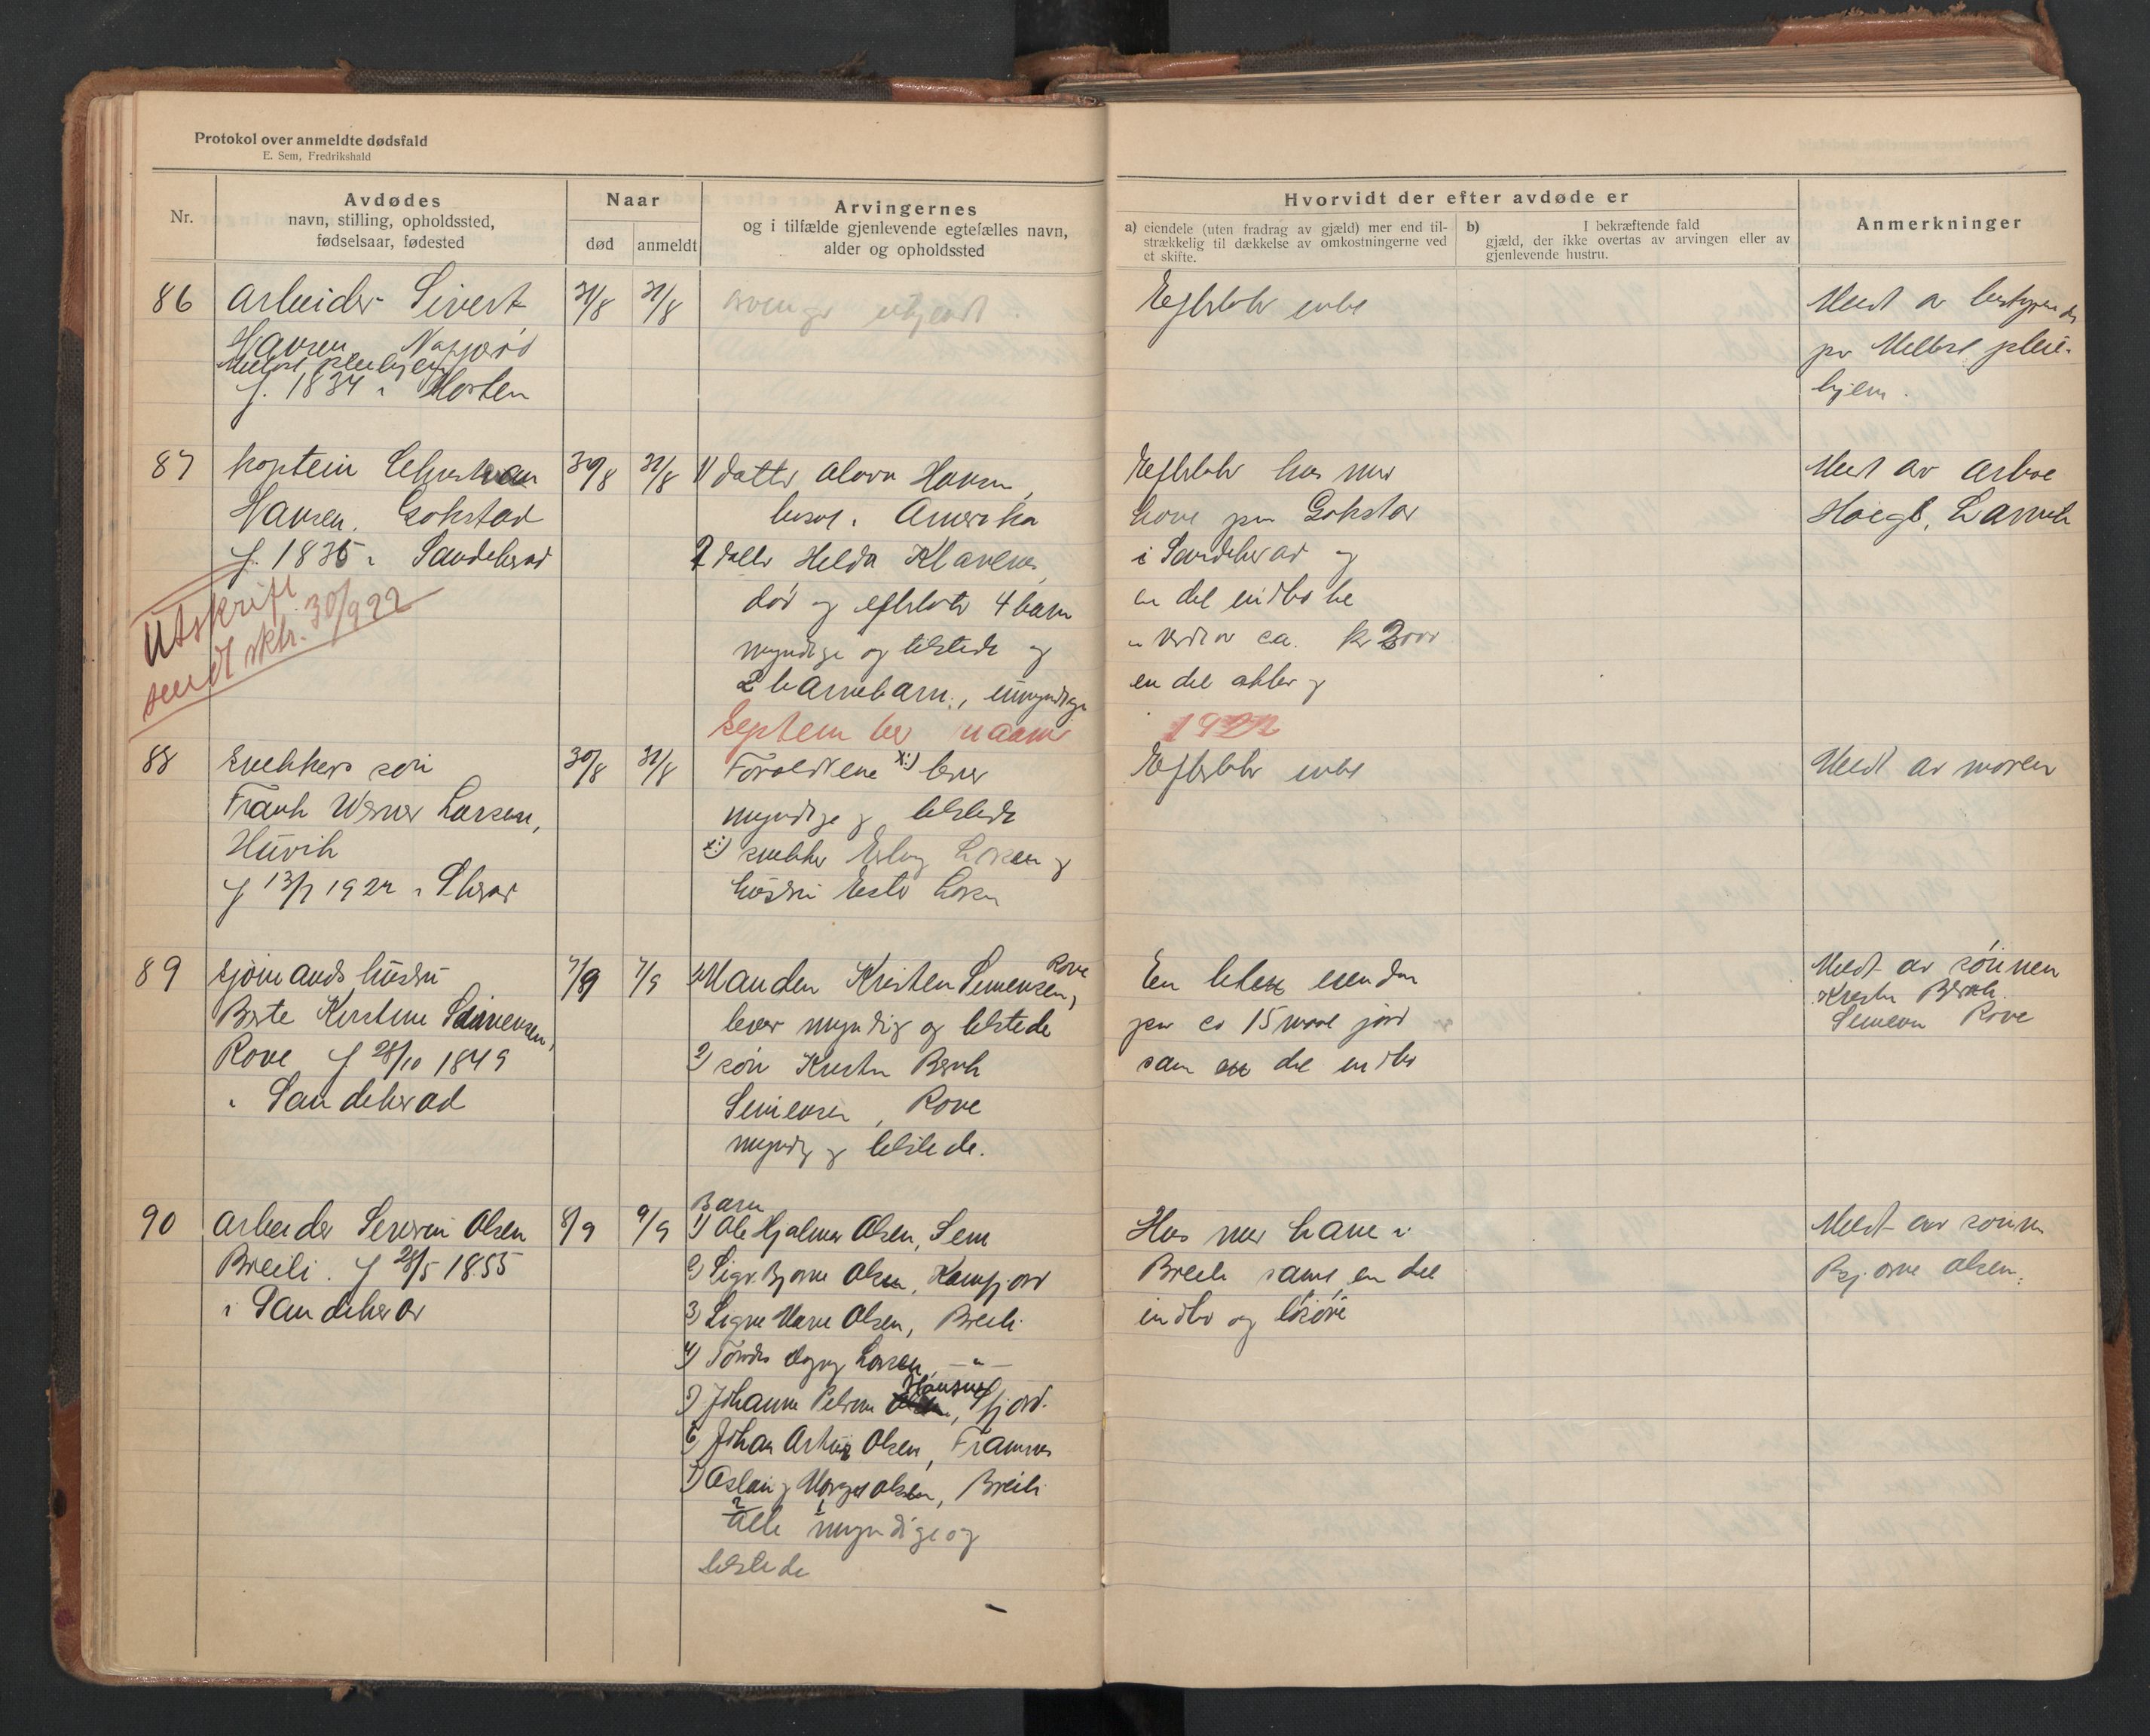 Protokol over anmeldte dødsfald
E. Sem, Fredrikshald
Nr.
Avdødes
navn, stilling, opholdssted,
fødselsaar, fødested
Naar
død
anmeldt
Arvingernes
og i tilfælde gjenlevende egtefælles navn,
alder og opholdssted
Hvorvidt der efter avdøde er
a) eiendele (uten fradrag av gjæld) mer end til-
strækkelig til dækkelse av omkostningerne ved
et skifte.
b) I bekræftende fald
gjæld, der ikke overtas av arvingen eller av
gjenlevende hustru.
Anmerkninger
86
Arbeider Sivert
Hansen
pleiehjem
f. 1834 i Horten
31/8
31/8
Efterlot intet
Meldt av bestyrer
pleie-
hjem.
87
kaptein
Hansen. Gokstad
f. 1835 i Sandeherad
30/8
31/8
1) datter Hansen,
bosat i Amerika
2 datter Helda Klavenes,
død og efterlot 4 barn
myndige og tilstede og
2 barnebarn, umyndige
Efterlot hus med
have paa Gokstad
i Sandeherad og
en del indbo
ca. kr 2000
en del aktier og
Meldt av
Utskrift
sendt sktr. 30/9 22
September maaned
1922
88
Snekkers søn
Frank Werner Larsen,
Huvik
f 13/7 1922 i S.herad
30/8
31/8
Forældrene x:) lever
myndige og tilstede
x:) snekker Larsen og
hustru Larsen
Efterlot intet
Meldt av moren
89
Sjømands hustru
Berte Kirstine Simensen,
Rove f 28/10 1849
i Sandeherad
7/9
7/9
1) Manden Kristen Simensen, Rove
lever myndig og tilstede
2) søn Kristen Bernh
Simensen, Rove
myndig og tilstede.
En liten eiendom
paa ca 15 maal jord
samt en del indbo
Meldt av sønnen
Kristen Bernh.
Simensen Rove
90
Arbeider Severin Olsen
Breili. f 28/5 1855
i Sandeherad
8/9
9/9
Barn
1) Ole Hjalmar Olsen, Sem
2) Sigv. Bjarne Olsen, Kamfjord
3) Signe Marie Olsen, Breili
4) Tordis Larsen —"—
5) Johanne Petrine Hansen, Sfjord.
6) Johan Artur Olsen, Framnes
7) Aslaug Margit Olsen, Breili
alle myndige og
tilstede
Hus med have i
Breili samt en del
indbo og løsøre
Meldt av sønnen
Bjarne Olsen.